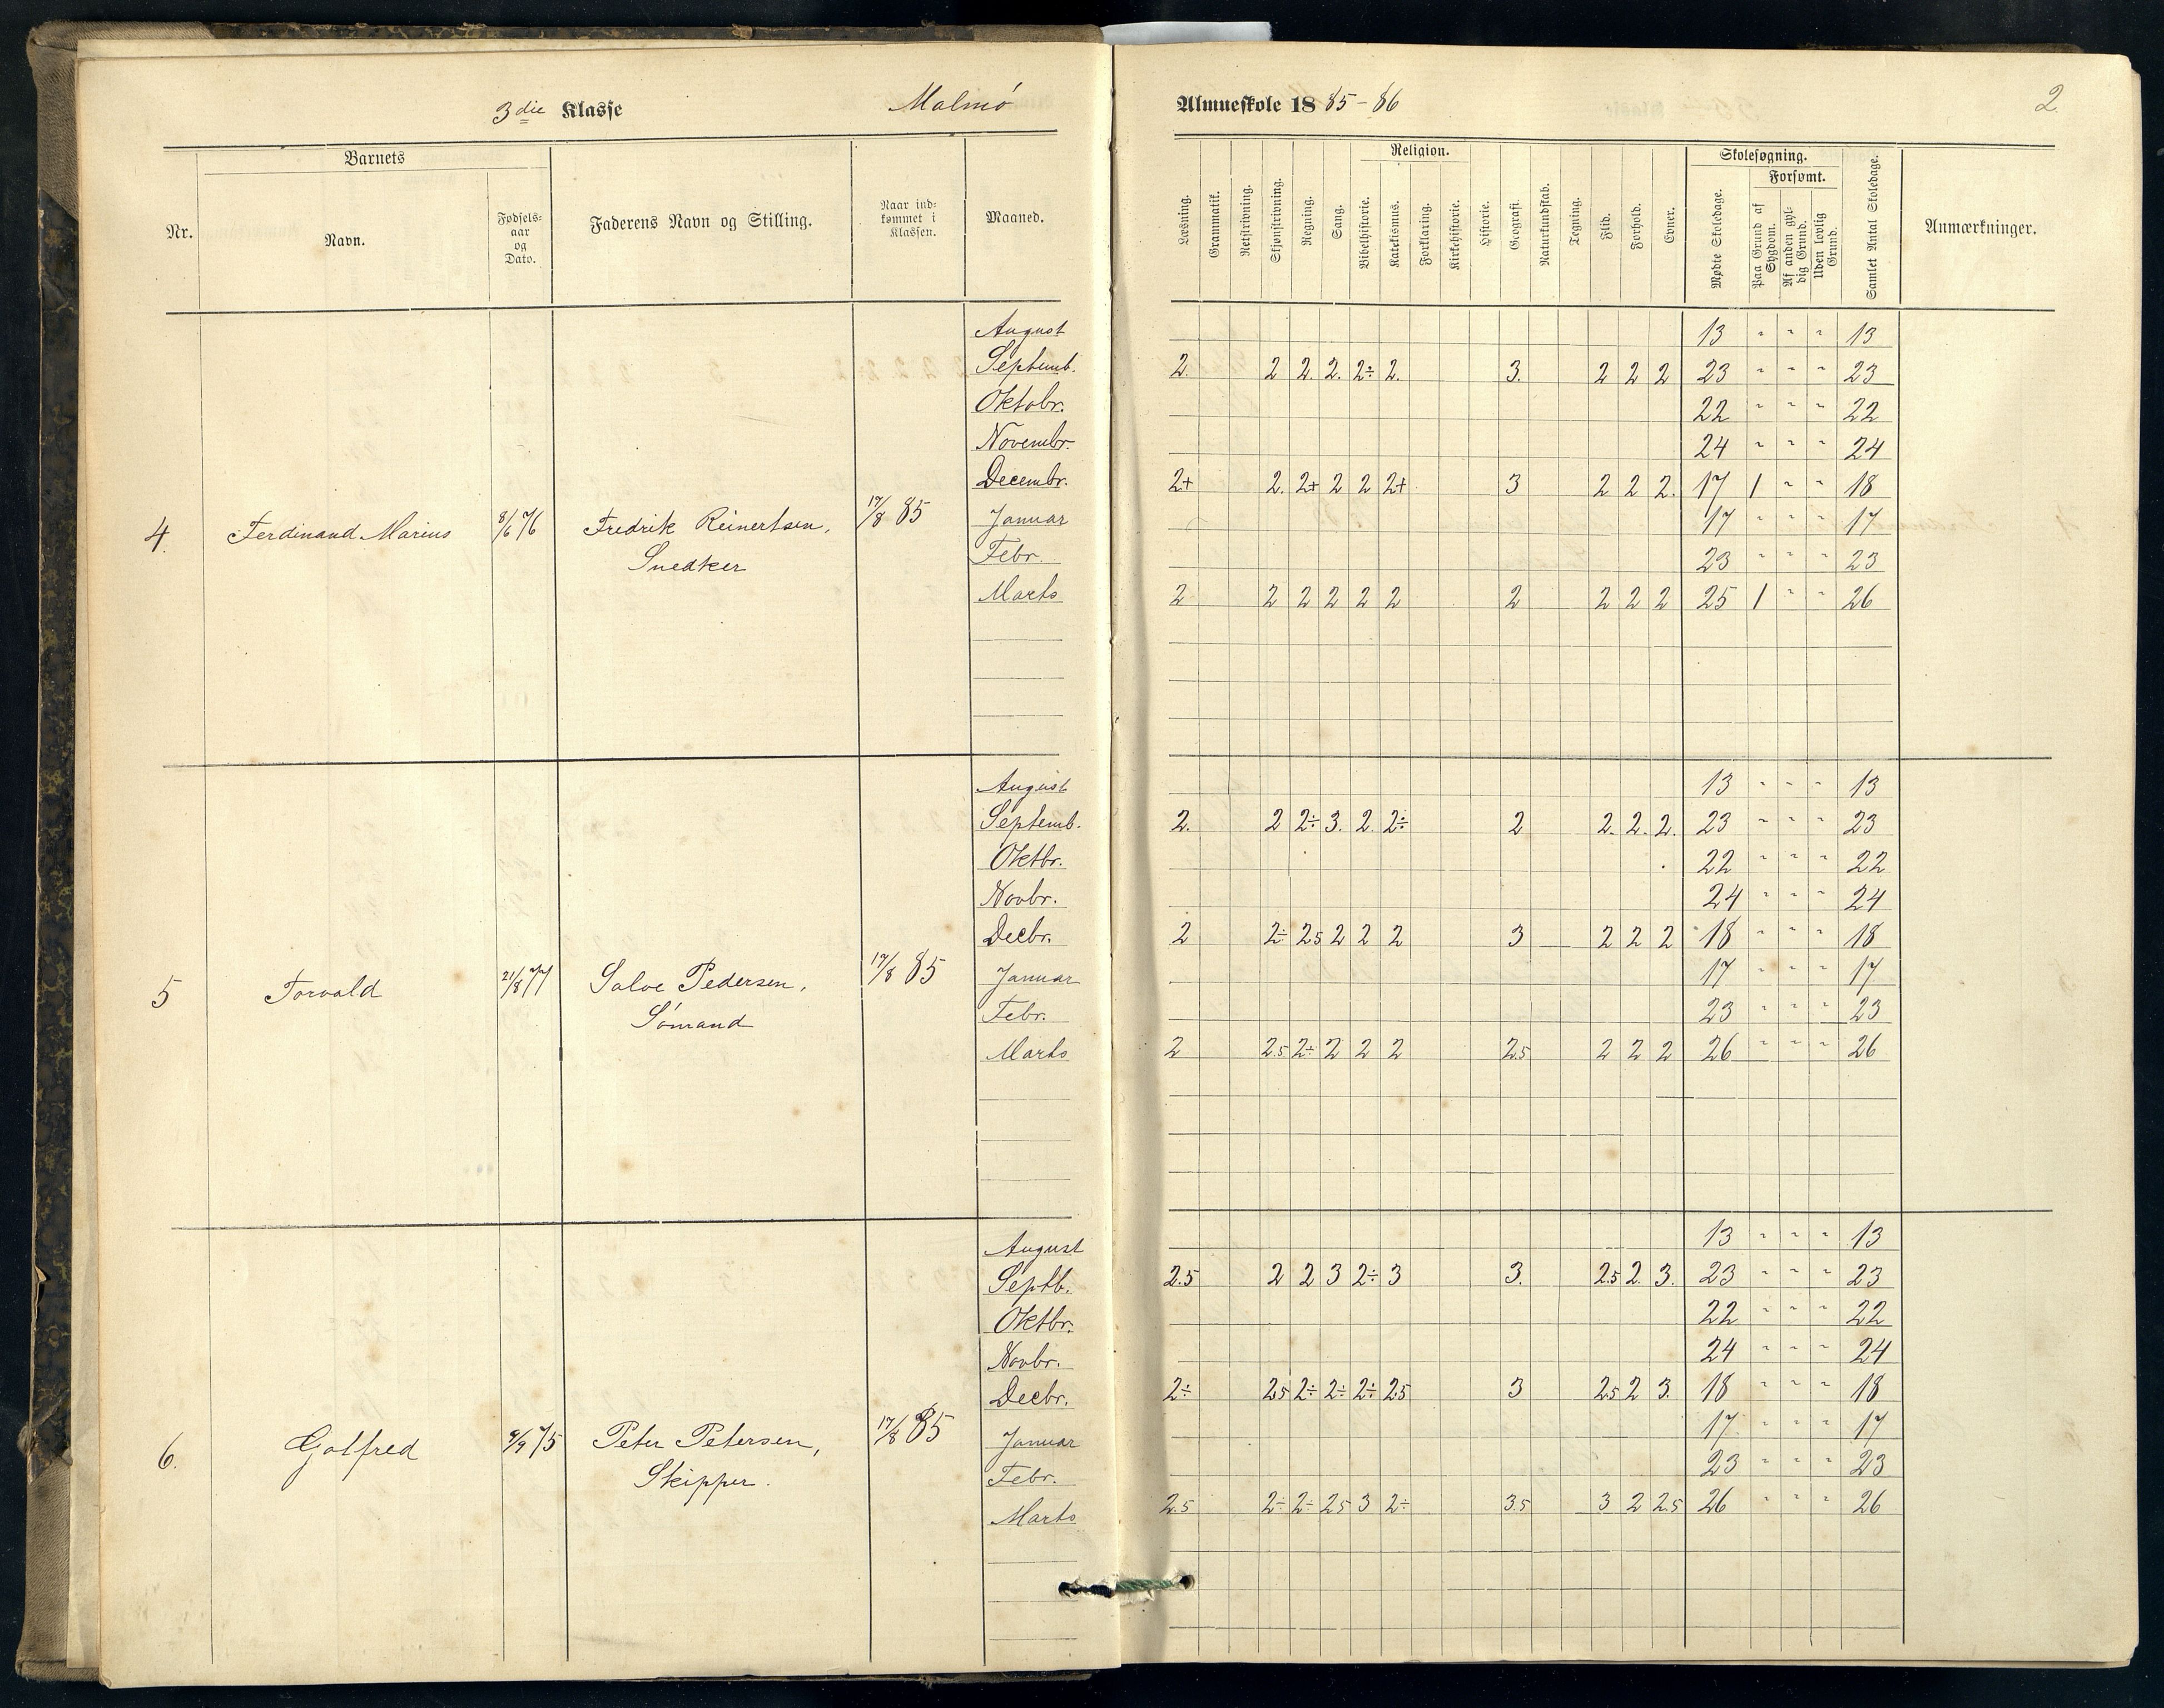 3die Klasse Malmö Almueskole 1885-86 2.
Nr. Barnets Faderens Navn og Stilling. Naar ind=kommet i Klassen. Maaned.
Navn. Fødsels=aar og Dato.
Læsning. Grammatik. Retskrivning. Skjønskrivning. Regning. Sang. Religion. Historie. Geografi. Naturkundskab. Tegning. Flid. Forhold. Evner. Skolesøgning. Samlet Antal Skoledage. Anmærkninger.
Bibelhistorie. Katekismus. Forklaring. Kirkehistorie. Mødte Skoledage. Forsømt.
Paa Grund af Sygdom. Af anden gyl=dig Grund. Uden lovlig Grund.
4. Ferdinand Marius 8/6 76 Fredrik Reinertsen, Snedker 17/8 85
August 13 " " " 13
Septemb. 2. 2 2. 2. 2÷ 2. 3. 2 2 2 23 " " " 23
Oktobr. 22 " " " 22
Novembr. 24 " " " 24
Decembr. 2+ 2. 2+ 2 2 2+ 3 2 2 2. 17 1 " " 18
Januar 17 " " " 17
Febr. 23 " " " 23
Marts 2 2 2 2 2 2 2 2 2 2 25 1 " " 26
5 Torvald 21/8 77 Salve Pedersen, Sömand 17/8 85
August 13 " " " 13
Septemb. 2. 2 2÷ 3. 2. 2÷ 2 2. 2. 2. 23 " " " 23
Oktbr. 22 " " " 22
Novbr. 24 " " " 24
Decbr. 2 2÷ 2.5 2 2 2 3 2 2 2 18 " " " 18
Januar 17 " " " 17
Febr. 23 " " " 23
Marts 2 2.5 2÷ 2 2 2 2.5 2 2 2 26 " " " 26
6. Gotfred 9/9 75 Peter Petersen, Skipper. 17/8 85
August 13 " " " 13
Septb. 2.5 2 2 3 2÷ 3 3. 2.5 2. 3. 23 " " " 23
Oktbr. 22 " " " 22
Novbr. 24 " " " 24
Decbr. 2÷ 2.5 2÷ 2÷ 2÷ 2.5 3 2.5 2 3. 18 " " " 18
Januar 17 " " " 17
Febr. 23 " " " 23
Marts 2.5 2÷ 2÷ 2.5 3 2÷ 3.5 3 2 2.5 26 " " " 26